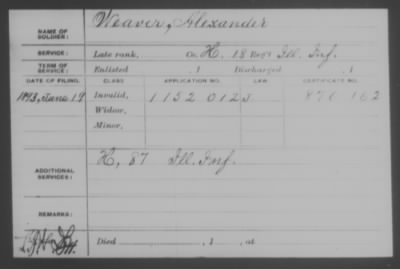 NAME OF SOLDIER: Weaver, Alexander
SERVICE: Late rank, Co. H, 18 Reg't Ill. Inf.
TERM OF SERVICE: Enlisted , 1 Discharged , 1
DATE OF FILING. CLASS. APPLICATION NO. LAW. CERTIFICATE NO.
1893, June 19 Invalid, 1152 012
Widow,
Minor,
ADDITIONAL SERVICES: H, 87 Ill. Inf.
REMARKS:
Died , 1 , at